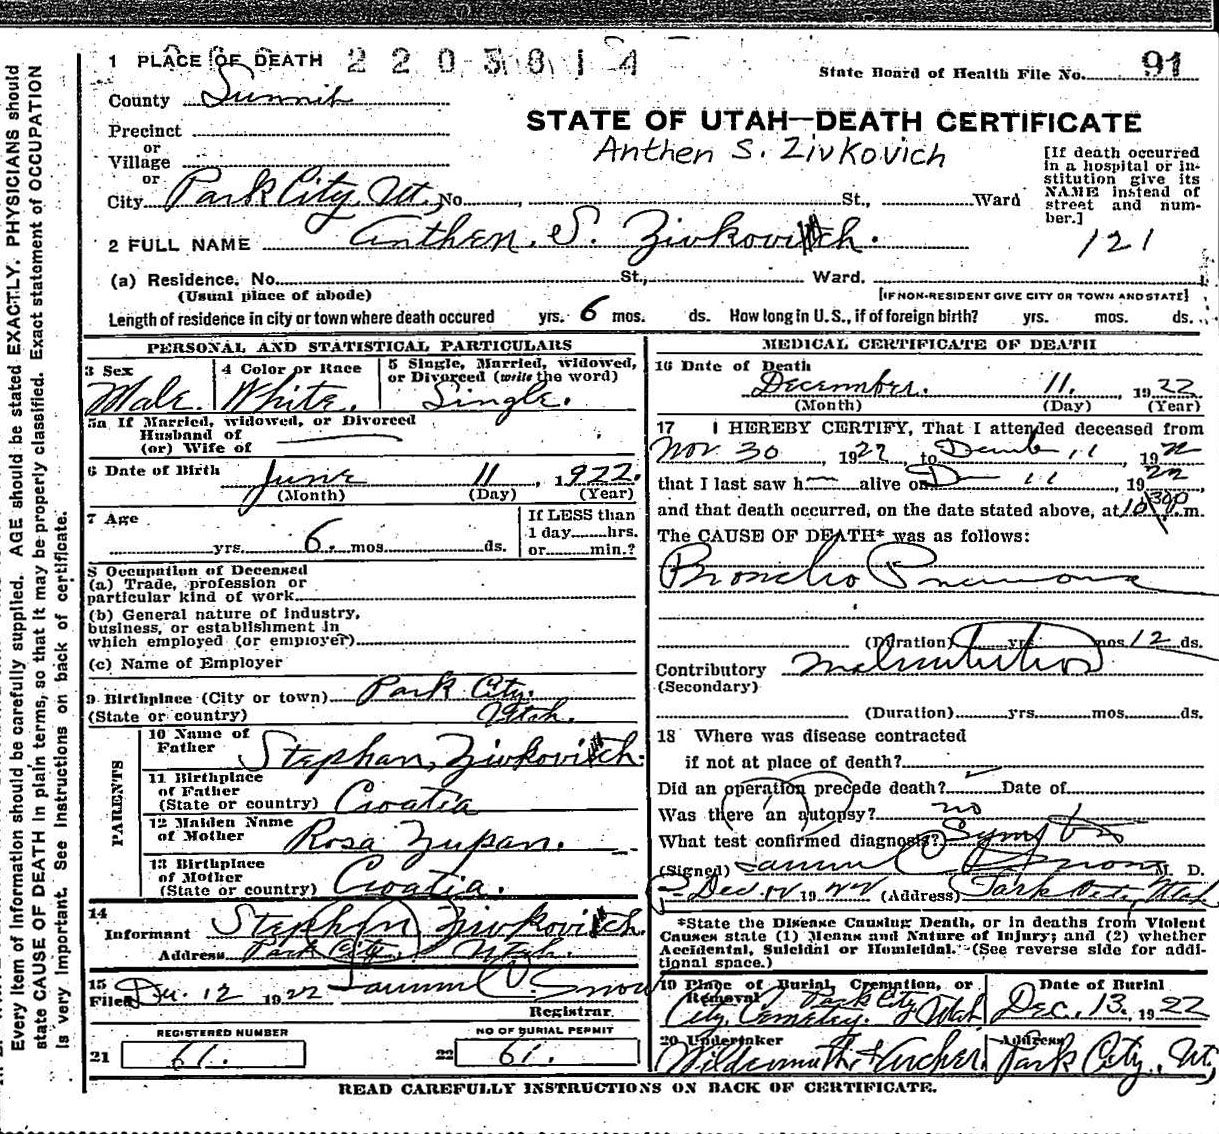 1 PLACE OF DEATH 2203814
State Board of Health File No. 91
County Summit
STATE OF UTAH—DEATH CERTIFICATE
Precinct
or
Village
or
Anthen S. Zivkovich
[If death occurred
in a hospital or in-
stitution give its
NAME instead of
street and num-
ber.]
City Park City, Ut, No. , St., Ward
121
2 FULL NAME Anthen. S. Zivkovich.
(a) Residence. No. St., Ward.
(Usual place of abode)
[IF NON-RESIDENT GIVE CITY OR TOWN AND STATE]
Length of residence in city or town where death occured yrs. 6 mos. ds. How long in U. S., if of foreign birth? yrs. mos. ds.
PERSONAL AND STATISTICAL PARTICULARS
3 Sex
Male.
4 Color or Race
White.
5 Single, Married, widowed,
or Divorced (write the word)
Single.
5a If Married, widowed, or Divorced
Husband of
(or) Wife of
6 Date of Birth June 11, 1922.
(Month) (Day) (Year)
7 Age
yrs. 6. mos. ds.
If LESS than
1 day hrs.
or min.?
8 Occupation of Deceased
(a) Trade, profession or
particular kind of work
(b) General nature of industry,
business, or establishment in
which employed (or employer)
(c) Name of Employer
9 Birthplace (City or town) Park City.
(State or country) Utah.
PARENTS
10 Name of
Father Stephan, Zivkovich.
11 Birthplace
of Father
(State or country) Croatia
12 Maiden Name
of Mother Rosa Zupan.
13 Birthplace
of Mother
(State or country) Croatia.
14
Informant Stephan Zivkovich.
Address Park City, Utah.
15
Filed Dec. 12 1922 Snow
Registrar.
REGISTERED NUMBER
21 61.
NO OF BURIAL PERMIT
22 61.
MEDICAL CERTIFICATE OF DEATH
16 Date of Death
December. 11. 1922
(Month) (Day) (Year)
17 I HEREBY CERTIFY, That I attended deceased from
Nov 30, 1922 to 11, 1922
that I last saw h alive on D 11, 1922
and that death occurred, on the date stated above, at m.
The CAUSE OF DEATH* was as follows:
Broncho Pneumonia
(Duration) yrs. mos. 12 ds.
Contributory Malnutrition
(Secondary)
(Duration) yrs. mos. ds.
18 Where was disease contracted
if not at place of death?
Did an operation precede death? Date of
Was there an autopsy? no
What test confirmed diagnosis?
(Signed) M. D.
Dec 1922 (Address) Park City, Utah
*State the Disease Causing Death, or in deaths from Violent
Causes state (1) Means and Nature of Injury; and (2) whether
Accidental, Suicidal or Homicidal. (See reverse side for addi-
tional space.)
19 Place of Burial, Cremation, or
Removal Park City
City, Cemetery. Utah
Date of Burial
Dec. 13. 1922
20 Undertaker
Wildermuth & Archer.
Address
Park City, Ut,
READ CAREFULLY INSTRUCTIONS ON BACK OF CERTIFICATE.
Every item of information should be carefully supplied. AGE should be stated EXACTLY. PHYSICIANS should
state CAUSE OF DEATH in plain terms, so that it may be properly classified. Exact statement of OCCUPATION
is very important. See instructions on back of certificate.